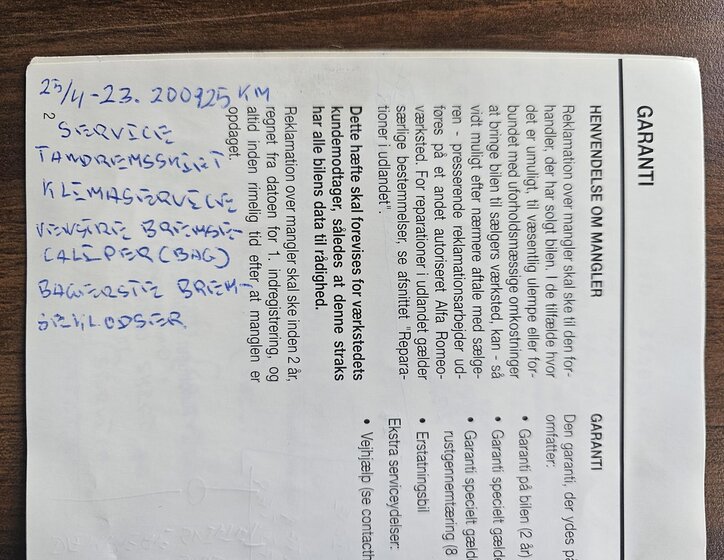 GARANTI
HENVENDELSE OM MANGLER
Reklamation over mangler skal ske til den for-
handler, der har solgt bilen. I de tilfælde hvor
det er umuligt, til væsentlig ulempe eller for-
bundet med uforholdsmæssige omkostninger
at bringe bilen til sælgers værksted, kan - så
vidt muligt efter nærmere aftale med sælge-
ren - presserende reklamationsarbejder ud-
føres på et andet autoriseret Alfa Romeo-
værksted. For reparationer i udlandet gælder
særlige bestemmelser, se afsnittet "Repara-
tioner i udlandet".
Dette hæfte skal forevises for værkstedets
kundemodtager, således at denne straks
har alle bilens data til rådighed.
Reklamation over mangler skal ske inden 2 år,
regnet fra datoen for 1. indregistrering, og
altid inden rimelig tid efter at manglen er
opdaget.
2
GARANTI
Den garanti, der ydes på
omfatter:
• Garanti på bilen (2 år)
• Garanti specielt gæld
• Garanti specielt gæld
rustgennemtæring (8
• Erstatningsbil
Ekstra serviceydelser:
• Vejhjælp (se contacth
25/4-23. 200925 KM
SERVICE
TANDREMSSKIFT
KLIMASERVICE
VENSTRE BREMSE-
CALIPER (BAG)
BAGERSTE BREM-
SEKLODSER